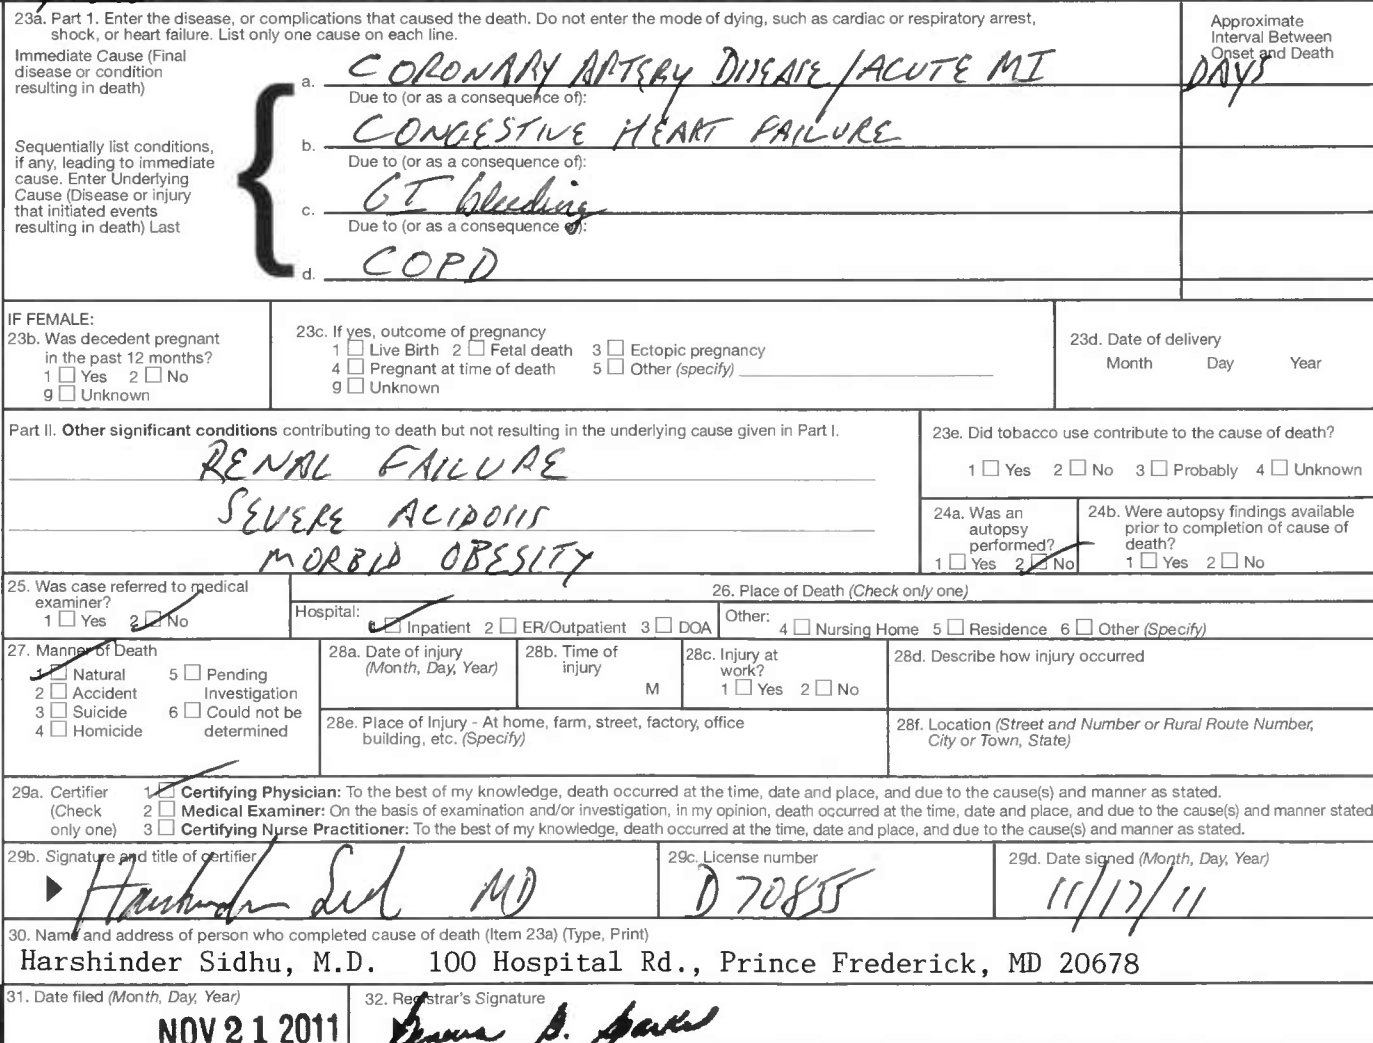 23a. Part 1. Enter the disease, or complications that caused the death. Do not enter the mode of dying, such as cardiac or respiratory arrest,
shock, or heart failure. List only one cause on each line.
Approximate
Interval Between
Onset and Death
Immediate Cause (Final
disease or condition
resulting in death)
a. CORONARY ARTERY DISEASE/ACUTE MI
DAYS
Due to (or as a consequence of):
Sequentially list conditions,
if any, leading to immediate
cause. Enter Underlying
Cause (Disease or injury
that initiated events
resulting in death) Last
b. CONGESTIVE HEART FAILURE
Due to (or as a consequence of):
c. GI bleeding
Due to (or as a consequence of):
d. COPD
IF FEMALE:
23b. Was decedent pregnant
in the past 12 months?
1 ☐ Yes 2 ☐ No
9 ☐ Unknown
23c. If yes, outcome of pregnancy
1 ☐ Live Birth 2 ☐ Fetal death 3 ☐ Ectopic pregnancy
4 ☐ Pregnant at time of death 5 ☐ Other (specify)
9 ☐ Unknown
23d. Date of delivery
Month Day Year
Part II. Other significant conditions contributing to death but not resulting in the underlying cause given in Part I.
RENAL FAILURE
SEVERE ACIDOSIS
MORBID OBESITY
23e. Did tobacco use contribute to the cause of death?
1 ☐ Yes 2 ☐ No 3 ☐ Probably 4 ☐ Unknown
24a. Was an
autopsy
performed?
1 ☐ Yes 2 ☑ No
24b. Were autopsy findings available
prior to completion of cause of
death?
1 ☐ Yes 2 ☐ No
25. Was case referred to medical
examiner?
1 ☐ Yes 2 ☑ No
26. Place of Death (Check only one)
Hospital:
1 ☑ Inpatient 2 ☐ ER/Outpatient 3 ☐ DOA
Other:
4 ☐ Nursing Home 5 ☐ Residence 6 ☐ Other (Specify)
27. Manner of Death
1 ☑ Natural 5 ☐ Pending
2 ☐ Accident Investigation
3 ☐ Suicide 6 ☐ Could not be
4 ☐ Homicide determined
28a. Date of injury
(Month, Day, Year)
28b. Time of
injury
M
28c. Injury at
work?
1 ☐ Yes 2 ☐ No
28d. Describe how injury occurred
28e. Place of Injury - At home, farm, street, factory, office
building, etc. (Specify)
28f. Location (Street and Number or Rural Route Number,
City or Town, State)
29a. Certifier
(Check
only one)
1 ☑ Certifying Physician: To the best of my knowledge, death occurred at the time, date and place, and due to the cause(s) and manner as stated.
2 ☐ Medical Examiner: On the basis of examination and/or investigation, in my opinion, death occurred at the time, date and place, and due to the cause(s) and manner stated
3 ☐ Certifying Nurse Practitioner: To the best of my knowledge, death occurred at the time, date and place, and due to the cause(s) and manner as stated.
29b. Signature and title of certifier
Harshinder MD
29c. License number
D70855
29d. Date signed (Month, Day, Year)
11/17/11
30. Name and address of person who completed cause of death (Item 23a) (Type, Print)
Harshinder Sidhu, M.D. 100 Hospital Rd., Prince Frederick, MD 20678
31. Date filed (Month, Day, Year)
NOV 21 2011
32. Registrar's Signature